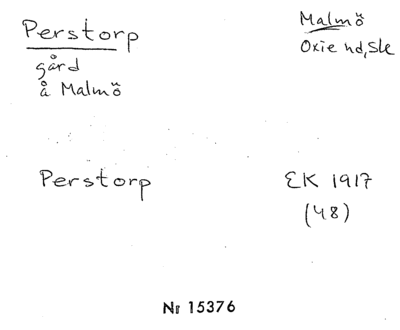 Perstorp
gård
å Malmö
Malmö
Oxie hd, Ske
Perstorp
EK 1917
(48)
Nr 15376